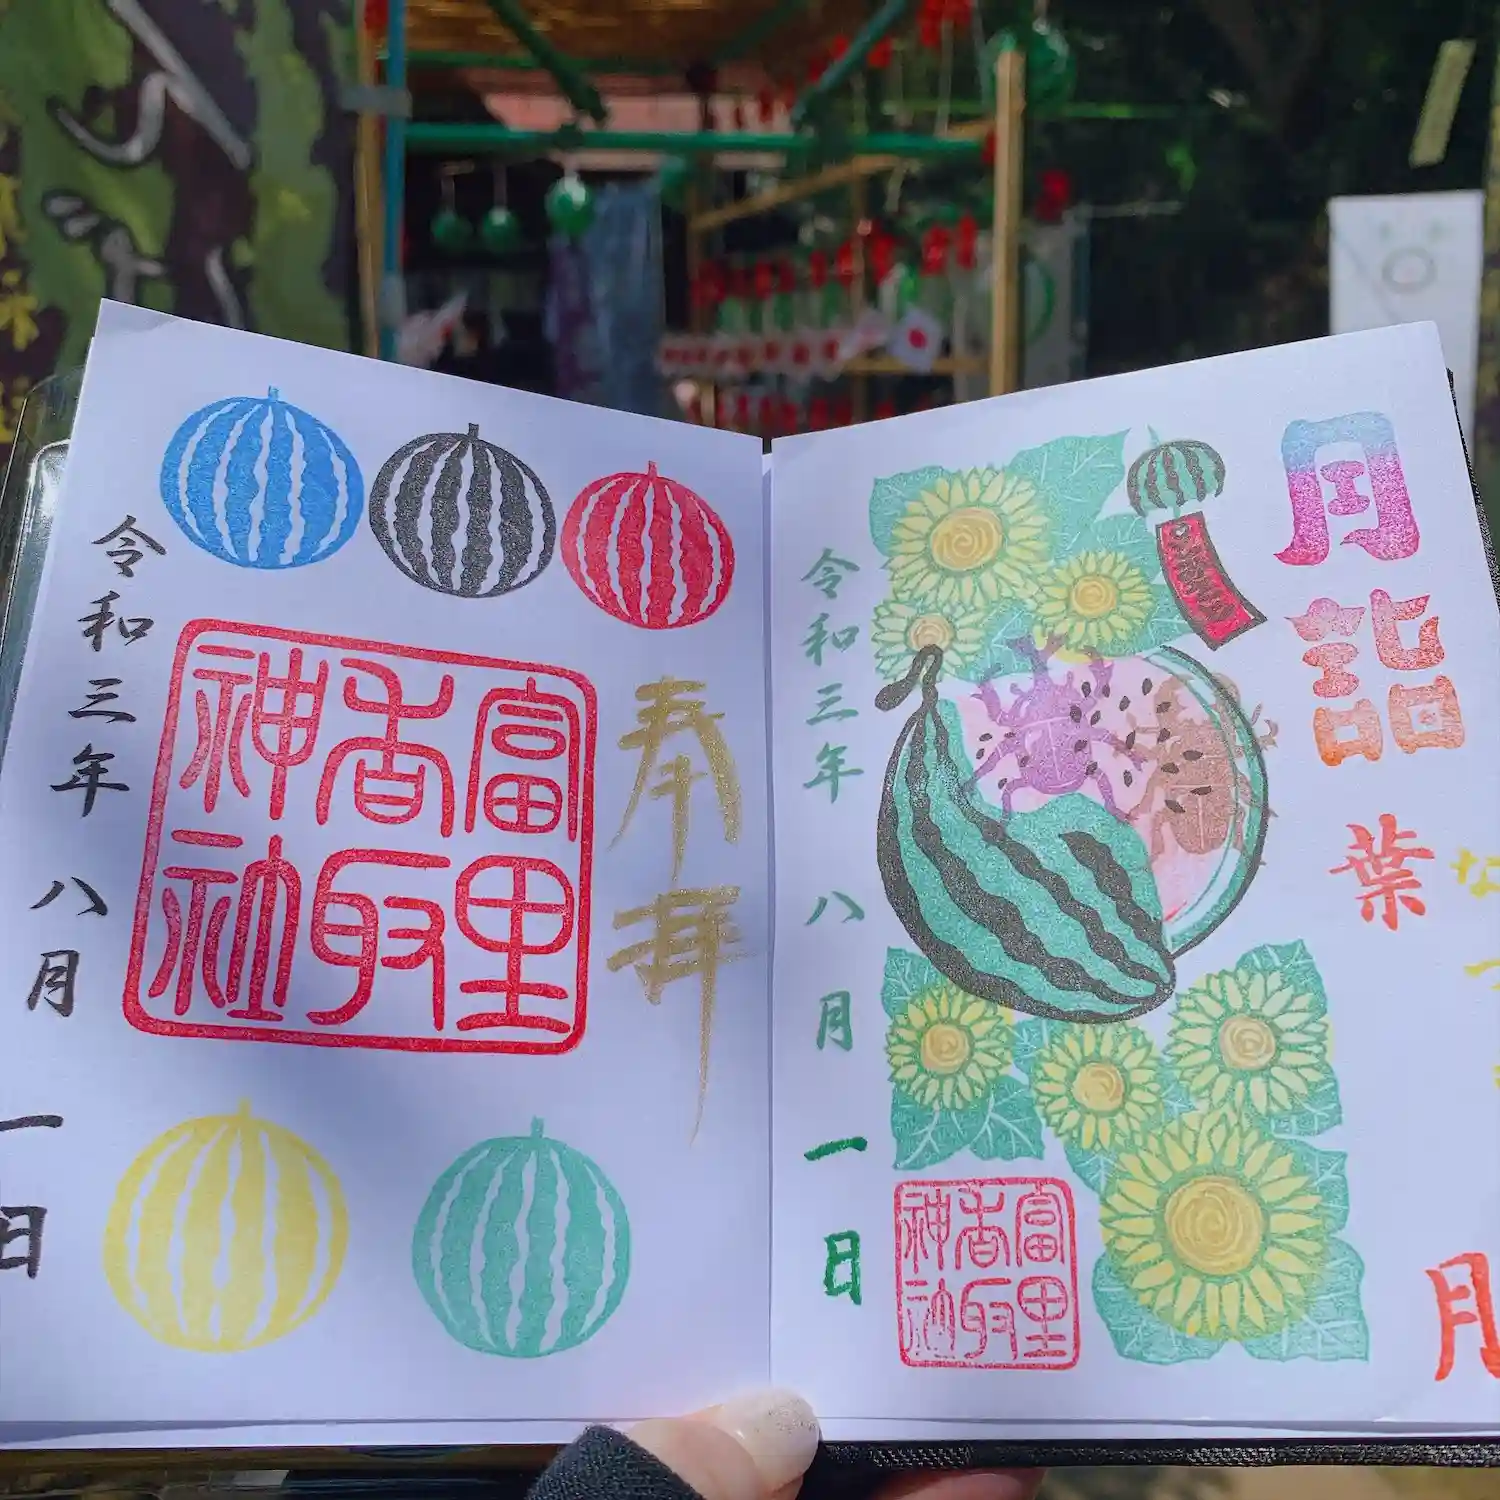 奉拝
富里
香取
神社
令和三年 八月 一日
月詣
なつ
葉
月
富里
香取
神社
令和三年 八月 一日